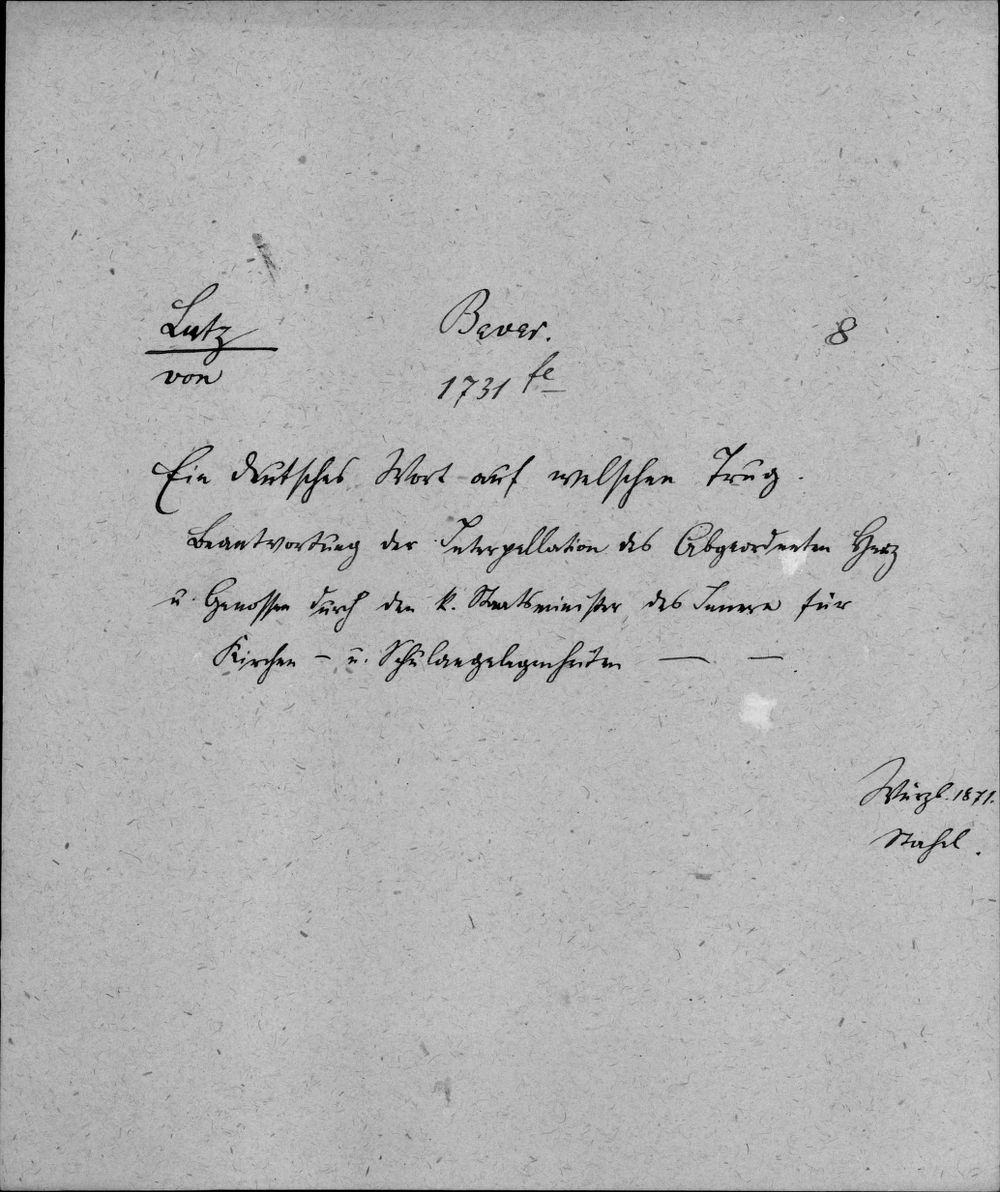 Lutz
von
Bavar.
1731 fe
8
Ein deutsches Wort auf welschen Trug.
Beantwortung der Interpellation des Abgeordneten Herz
u. Genossen durch den k. Staatsminister des Innern für
Kirchen- u. Schulangelegenheiten — —.
Würzb. 1871.
Stahel.